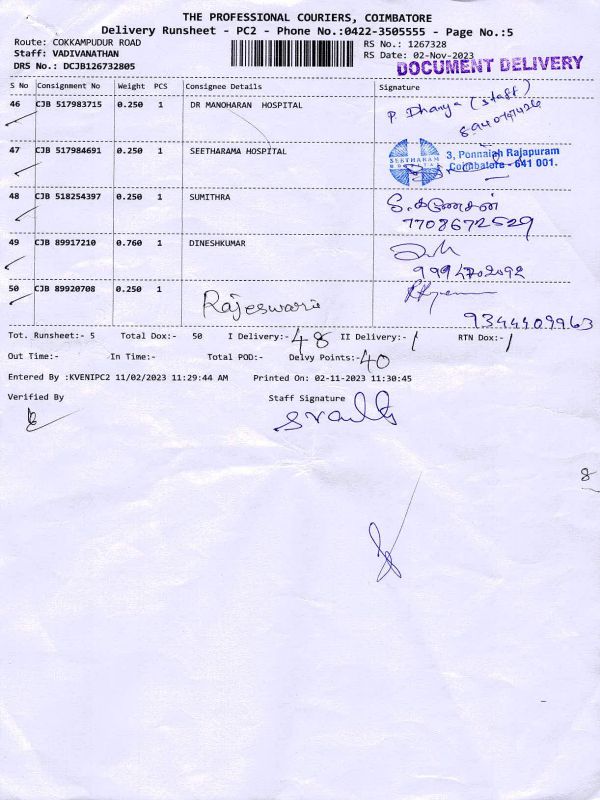 THE PROFESSIONAL COURIERS, COIMBATORE
Delivery Runsheet - PC2 - Phone No.:0422-3505555 - Page No.:5
Route: COKKAMPUDUR ROAD
RS No.: 1267328
Staff: VADIVANATHAN
RS Date: 02-Nov-2023
DRS No.: DCJB126732805
DOCUMENT DELIVERY
S No Consignment No Weight PCS Consignee Details Signature
46 CJB 517983715 0.250 1 DR MANOHARAN HOSPITAL
P Dhanya (staff)
47 CJB 517984691 0.250 1 SEETHARAMA HOSPITAL
SEETHARAM HOSPITAL
3, Ponnaiah Rajapuram
Coimbatore - 641 001.
48 CJB 518254397 0.250 1 SUMITHRA
7708672529
49 CJB 89917210 0.760 1 DINESHKUMAR
9994702092
50 CJB 89920708 0.250 1 Rajeswari
9344409963
Tot. Runsheet:- 5 Total Dox:- 50 I Delivery:- 48 II Delivery:- 1 RTN Dox:- 1
Out Time:- In Time:- Total POD:- Delvy Points:- 40
Entered By :KVENIPC2 11/02/2023 11:29:44 AM Printed On: 02-11-2023 11:30:45
Verified By Staff Signature
8